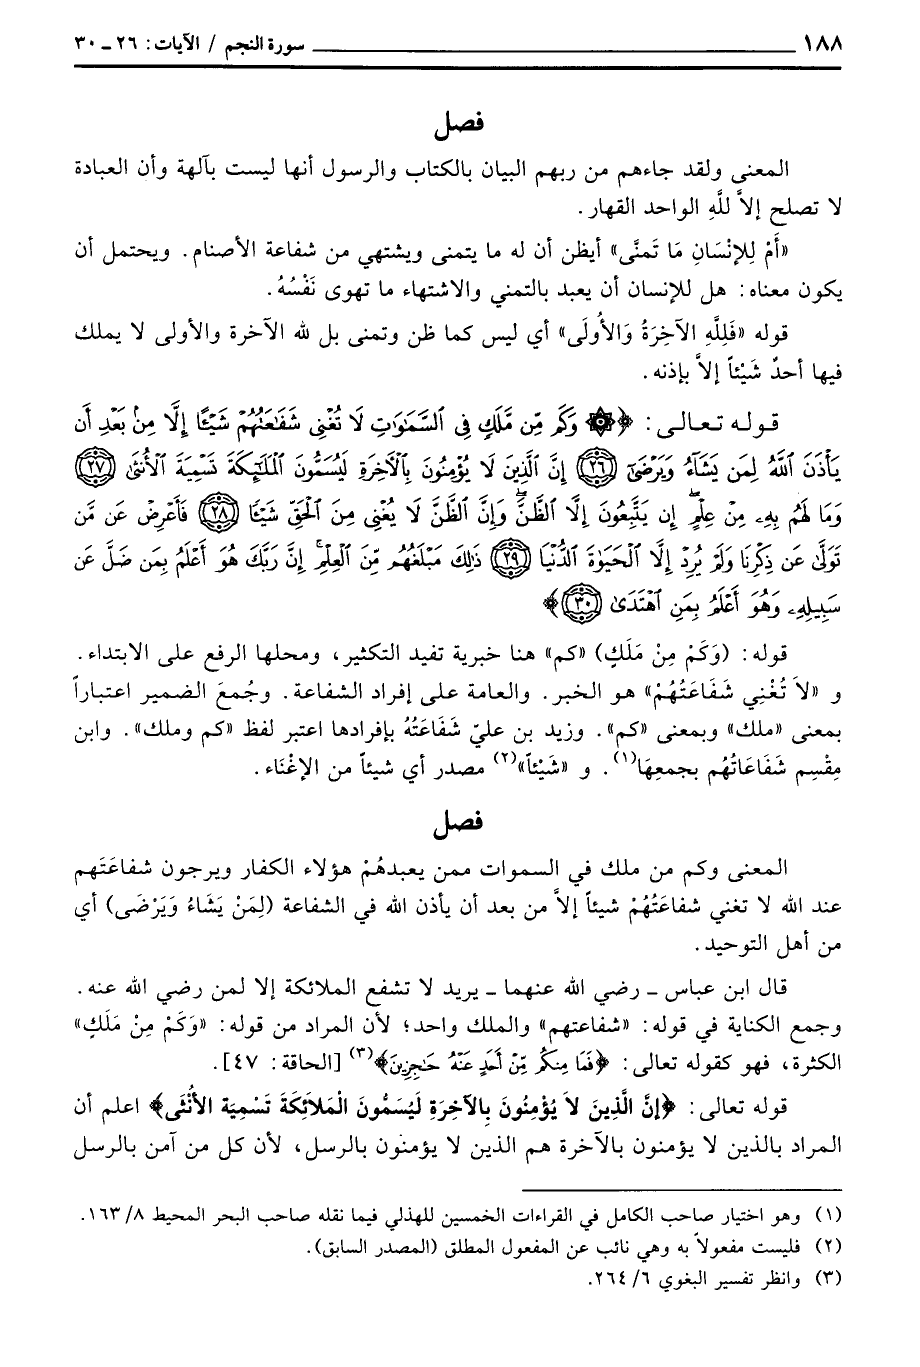 ١٨٨ سورة النجم / الآيات: ٢٦ ـ ٣٠
فصل
المعنى ولقد جاءهم من ربهم البيان بالكتاب والرسول أنها ليست بآلهة وأن العبادة
لا تصلح إلاَّ للَّهِ الواحد القهار.
«أَمْ لِلإنْسَانِ مَا تَمنَّى» أيظن أن له ما يتمنى ويشتهي من شفاعة الأصنام. ويحتمل أن
يكون معناه: هل للإنسان أن يعبد بالتمني والاشتهاء ما تهوى نَفْسُهُ.
قوله «فَلِلَّهِ الآخِرَةُ وَالأُولَى» أي ليس كما ظن وتمنى بل لله الآخرة والأولى لا يملك
فيها أحدٌ شَيْئاً إلاَّ بإذنه.
قوله تعالى: ﴿۞ وَكَم مِّن مَّلَكٍ فِي ٱلسَّمَٰوَٰتِ لَا تُغْنِي شَفَٰعَتُهُمْ شَيْـًٔا إِلَّا مِنۢ بَعْدِ أَن
يَأْذَنَ ٱللَّهُ لِمَن يَشَآءُ وَيَرْضَىٰٓ (٢٦) إِنَّ ٱلَّذِينَ لَا يُؤْمِنُونَ بِٱلْأَخِرَةِ لَيُسَمُّونَ ٱلْمَلَٰٓئِكَةَ تَسْمِيَةَ ٱلْأُنثَىٰ (٢٧)
وَمَا لَهُم بِهِۦ مِنْ عِلْمٍ ۖ إِن يَتَّبِعُونَ إِلَّا ٱلظَّنَّ ۖ وَإِنَّ ٱلظَّنَّ لَا يُغْنِي مِنَ ٱلْحَقِّ شَيْـًٔا (٢٨) فَأَعْرِضْ عَن مَّن
تَوَلَّىٰ عَن ذِكْرِنَا وَلَمْ يُرِدْ إِلَّا ٱلْحَيَوٰةَ ٱلدُّنْيَا (٢٩) ذَٰلِكَ مَبْلَغُهُم مِّنَ ٱلْعِلْمِ ۚ إِنَّ رَبَّكَ هُوَ أَعْلَمُ بِمَن ضَلَّ عَن
سَبِيلِهِۦ وَهُوَ أَعْلَمُ بِمَنِ ٱهْتَدَىٰ (٣٠)﴾
قوله: (وَكَمْ مِنْ مَلَكٍ) «كم» هنا خبرية تفيد التكثير، ومحلها الرفع على الابتداء.
و «لاَ تُغْنِي شَفَاعَتُهُمْ» هو الخبر. والعامة على إفراد الشفاعة. وجُمعَ الضمير اعتباراً
بمعنى «ملك» وبمعنى «كم». وزيد بن عليّ شَفَاعَتُهُ بإفرادها اعتبر لفظ «كم وملك». وابن
مِقْسِم شَفَاعَاتُهُم بجمعِهَا(١). و «شَيْئاً»(٢) مصدر أي شيئاً من الإغْنَاء.
فصل
المعنى وكم من ملك في السموات ممن يعبدهُمْ هؤلاء الكفار ويرجون شفاعَتَهم
عند الله لا تغني شفاعَتُهُمْ شيئاً إلاَّ من بعد أن يأذن الله في الشفاعة (لِمَنْ يَشَاءُ وَيَرْضَى) أي
من أهل التوحيد.
قال ابن عباس ـ رضي الله عنهما ـ يريد لا تشفع الملائكة إلا لمن رضي الله عنه.
وجمع الكناية في قوله: «شفاعتهم» والملك واحد؛ لأن المراد من قوله: «وَكَمْ مِنْ مَلَكٍ»
الكثرة، فهو كقوله تعالى: ﴿فَمَا مِنكُم مِّنْ أَحَدٍ عَنْهُ حَٰجِزِينَ﴾(٣) [الحاقة: ٤٧].
قوله تعالى: ﴿إنَّ الَّذِينَ لاَ يُؤْمِنُونَ بِالآخِرَةِ لَيُسَمُّونَ الْمَلاَئِكَةَ تَسْمِيَة الأُنْثَى﴾ اعلم أن
المراد بالذين لا يؤمنون بالآخرة هم الذين لا يؤمنون بالرسل، لأن كل من آمن بالرسل
(١) وهو اختيار صاحب الكامل في القراءات الخمسين للهذلي فيما نقله صاحب البحر المحيط ٨/ ١٦٣.
(٢) فليست مفعولاً به وهي نائب عن المفعول المطلق (المصدر السابق).
(٣) وانظر تفسير البغوي ٦/ ٢٦٤.